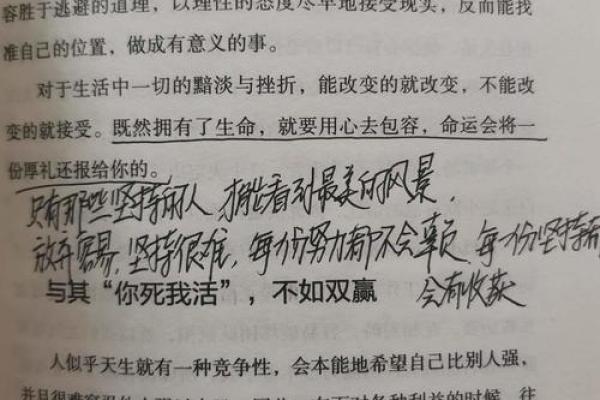 容胜于逃避的道理，以理性的态度尽早地接受现实，反而能找
准自己的位置，做成有意义的事。
对于生活中一切的黯淡与挫折，能改变的就改变，不能改
变的就接受。既然拥有了生命，就要用心去包容，命运会将一
份厚礼还报给你的。
只有那些坚持的人 才能看到最美的风景，
放弃容易，坚持很难，每一份努力都不会辜负，每一份坚持都
会有收获
与其“你死我活”，不如双赢
人似乎天生就有一种竞争性，会本能地希望自己比别人强，